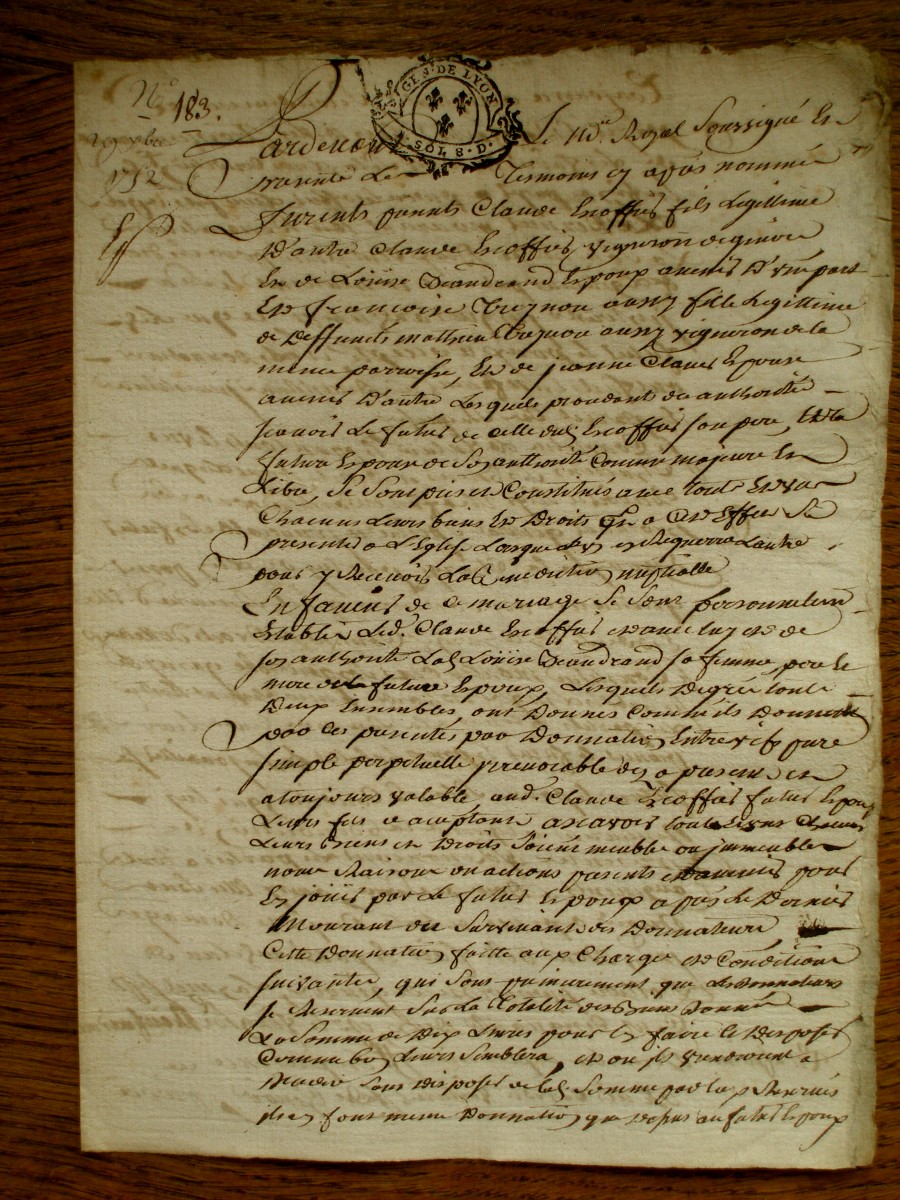 N° 183.
9bre
1712
GNāL DE LYON
SOLS 8. D.
Pardevant Le No.re Royal Soussigné Et
presents Les Tesmoins cy apres nommés
furents pnnts Claude Escoffier fils Legittime
D'autre Claude Escoffier, vigneron de
Et de Loüise Deandrand Espoux avenir D'une part
Et francoise Trignou aussy fille Legittime
de Deffuncts mathieu Trignou aussy vigneron de la
meme parroisse, Et de jeanne Clauel Espouse
avenir D'autre Lesquels procedants de authorité
scavoir Le futur de celle dud Escoffier son pere, Et La
future Espouse de Son authorité Comme majeure Et
Libre, Se Sont pris et Constitués avec touts Et un
Chacuns Leurs biens Et Droits Et a Cet Effet Se
presenter a L'Eglise Lorsque L'un En Requerra L'autre
pour y Recevoir La Benediction nuptialle
En faveur de ce mariage Se Sont personnellem
Establis Led. Claude Escoffier et avec luy et de
son authorité Lad Loüise Deandrand sa femme pere Et
mere de la future Espoux, Lesquels De gré touts
Deux Ensembles, ont Donnés Comme ils Donnent
par Ces presentes par Donnation Entre vifs pure
simple perpetuelle irrevocable des a present et
a toujours valable, aud. Claude Escoffier futur Espoux
Leurs fils ce acceptant ascavoir touts Et uns Chacuns
Leurs biens et Droits Soient meubles ou jmmeubles
noms Raisons ou actions presents et avenir pour
En jouir par Le futur Espoux apres Le Dernier
Mourant ou Survivant des Donnateurs
Cette Donnation faitte aux Charges et Conditions
suivantes, qui Sont primierement que Les Donnateurs
Se Reservent Sur La totalité des biens Donnés
La Somme de Dix Livres pour En faire Et Disposer
Comme bon Leurs Semblera, et ou ils viendroient a
Deceder Sans Disposer de lad. Somme par Eux Reservée
ils En font meme Donnation que Dessus au futur Espoux